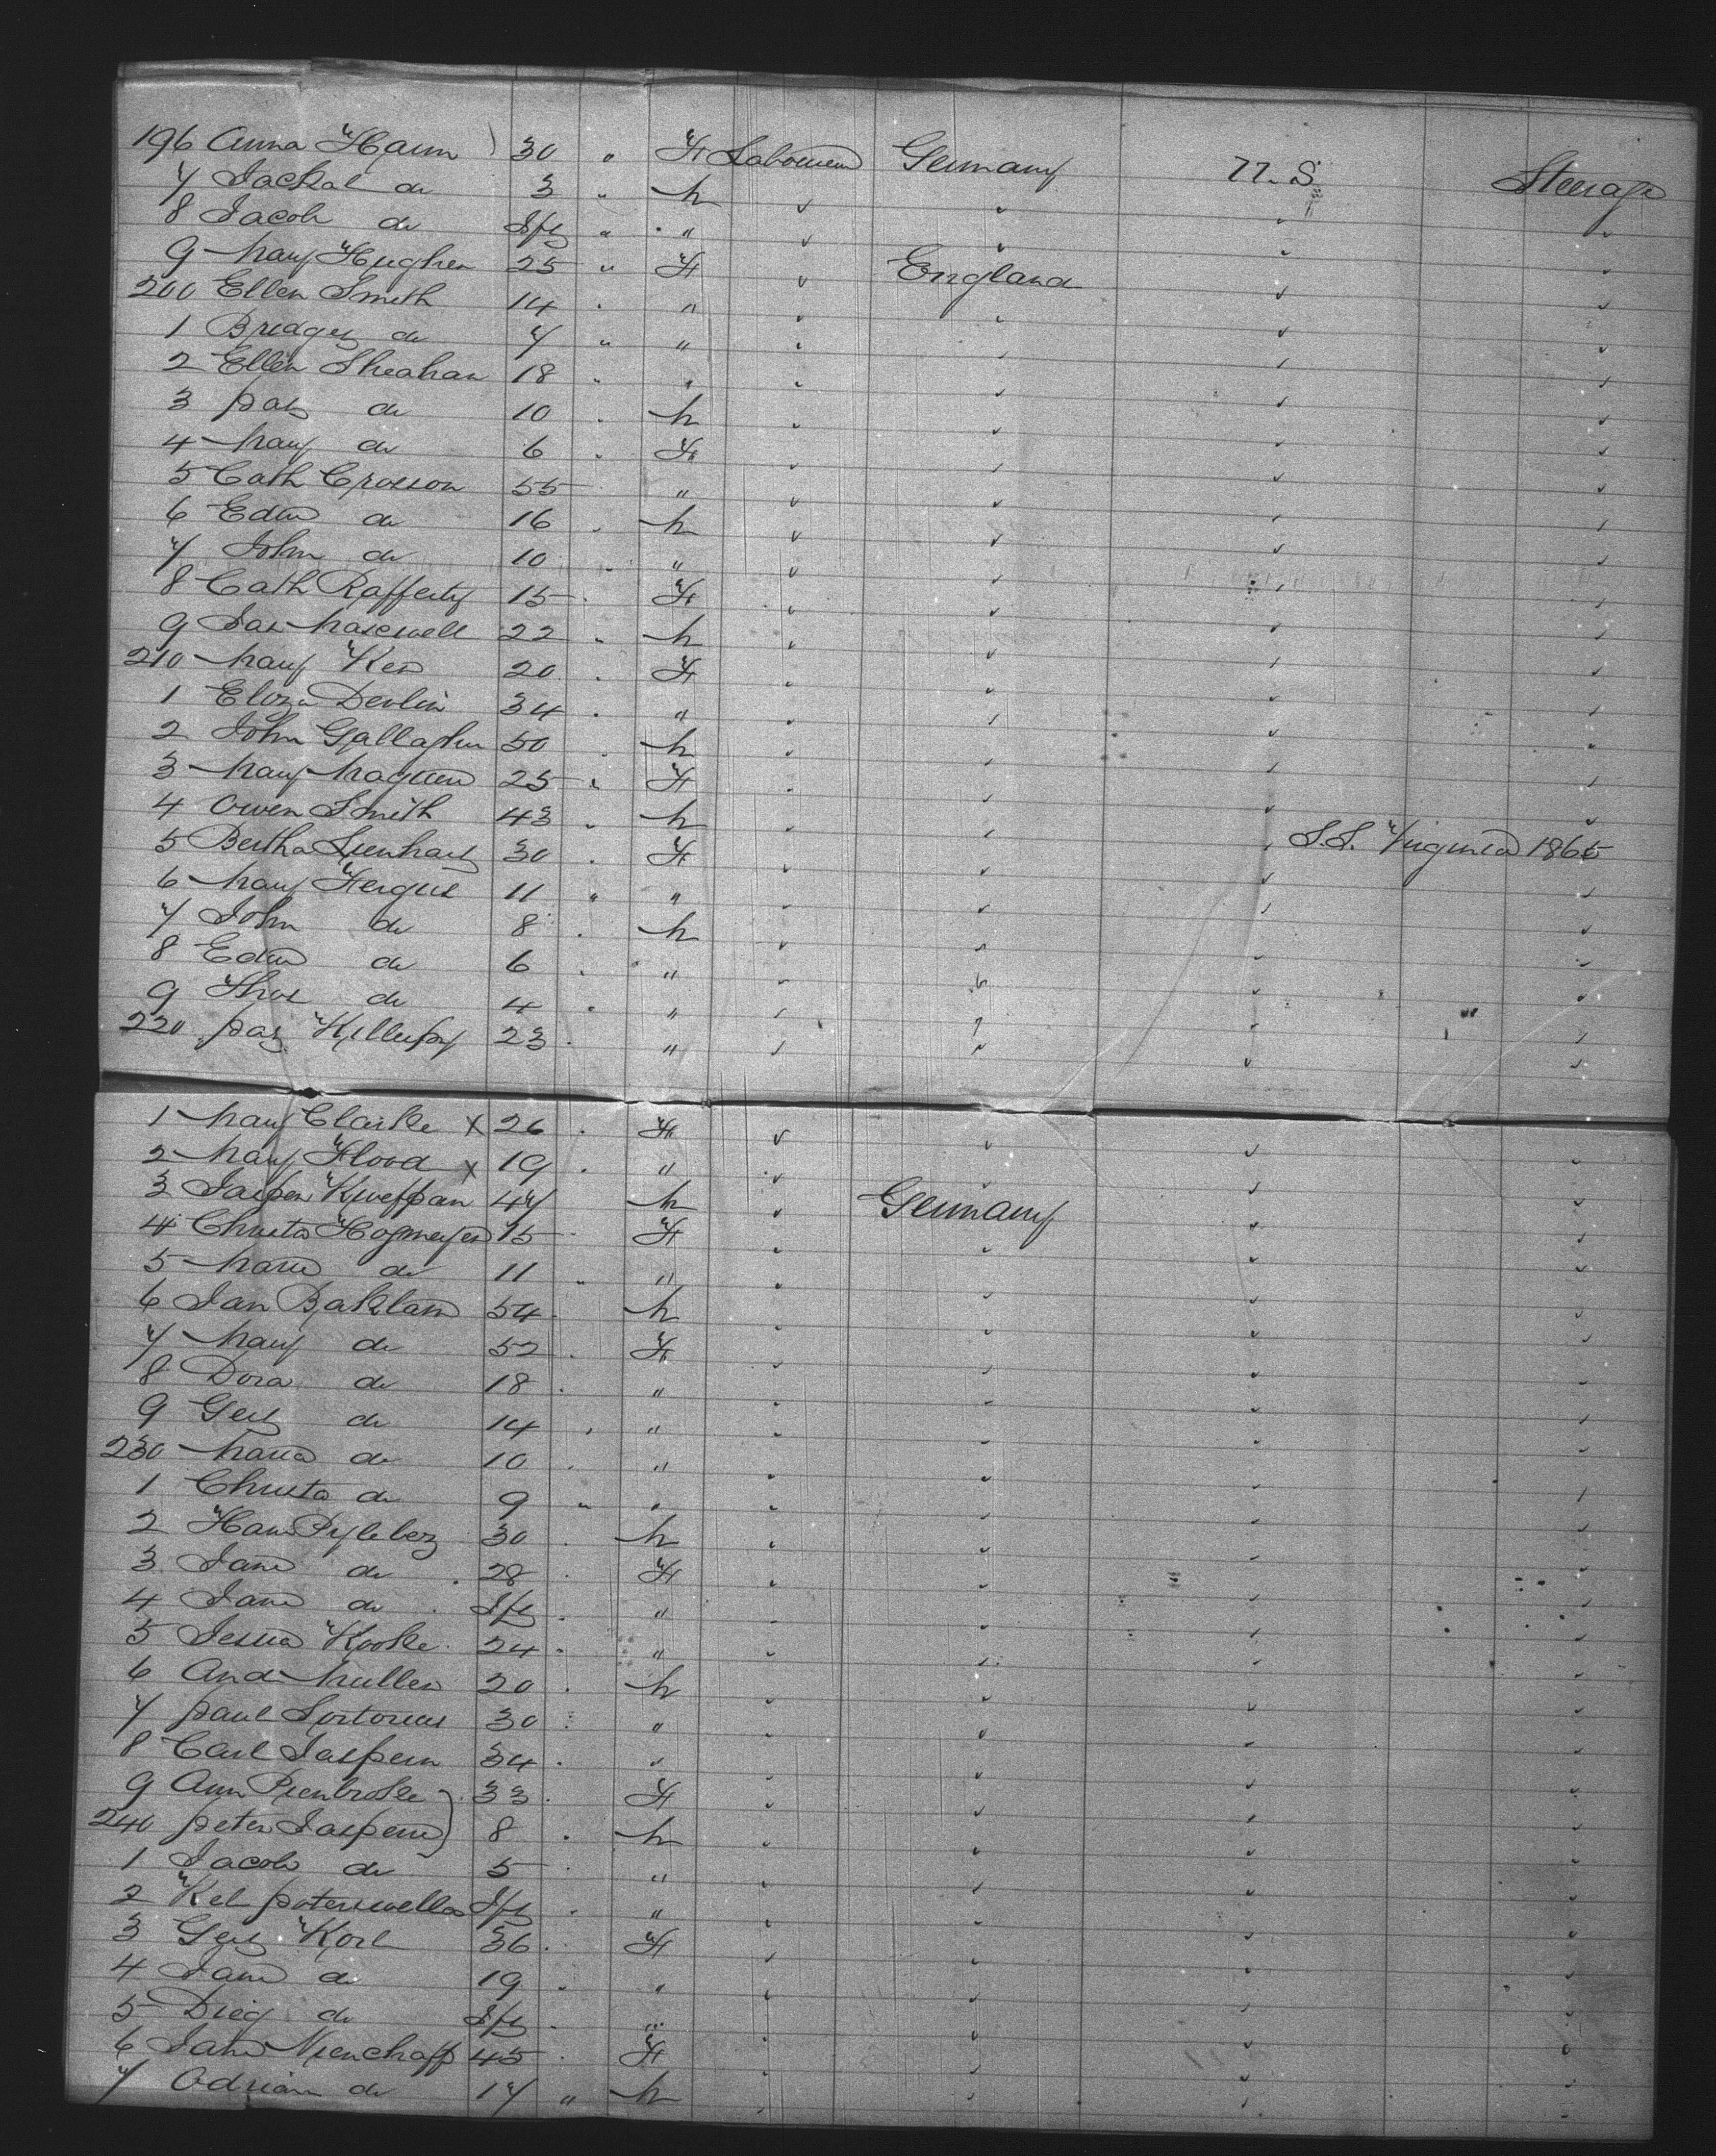 196 Anna Hamm 30 " F Labourer Germany U.S. Steerage
7 Jackal do 3 " M
8 Jacob do Inft " "
9 Mary Hughes 25 " F England
200 Ellen Smith 14 " "
1 Bridget do 7 " "
2 Ellen Sheahan 18 " "
3 Pat do 10 " M
4 Mary do 6 " F
5 Cath Crosson 55 "
6 Edwd do 16 " M
7 John do 10 " "
8 Cath Rafferty 15 " F
9 Jas Maxwell 22 " M
210 Mary Kerr 20 " F
1 Eliza Devlin 34 " "
2 John Gallagher 50 " M
3 Mary Maguire 25 " F
4 Owen Smith 43 " M
5 Bertha Lienhart 30 " F S.S. Virginia 1865
6 Mary Fergus 11 " "
7 John do 8 " M
8 Edwd do 6 " "
9 Thos do 4 " "
220 Pat 23 " "
1 Mary Clarke X 26 " F
2 Mary Flood X 19 " "
3 Jasper 47 M Germany
4 Christa Hogmeyer 15 F
5 Maria do 11 " "
6 Jan Baklam 54 " M
7 Mary do 52 " F
8 Dora do 18 " "
9 Gert do 14 " "
230 Maria do 10 " "
1 Christa do 9 " "
2 Ham 30 " M
3 Jane do 28 " F
4 Jane do Inft " "
5 Kooke 24 " "
6 And Muller 20 " M
7 Paul Sortorius 30 " "
8 Carl Jaspern 34 " "
9 Ann 33 " F
240 Peter Jaspern 8 " M
1 Jacob do 5 "
2 Kel Inft " "
3 Gert Korl 36 " F
4 Jane do 19 " "
5 Dieg do Inft " "
6 Jane 45 " F
7 Adrian do 17 " M